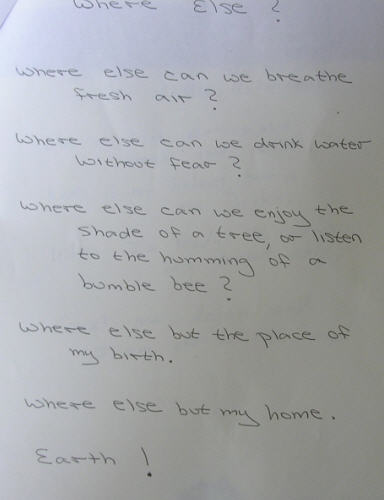 Where Else ?
Where else can we breathe
fresh air ?
Where else can we drink water
without fear ?
Where else can we enjoy the
shade of a tree, or listen
to the humming of a
bumble bee ?
Where else but the place of
my birth.
Where else but my home.
Earth !